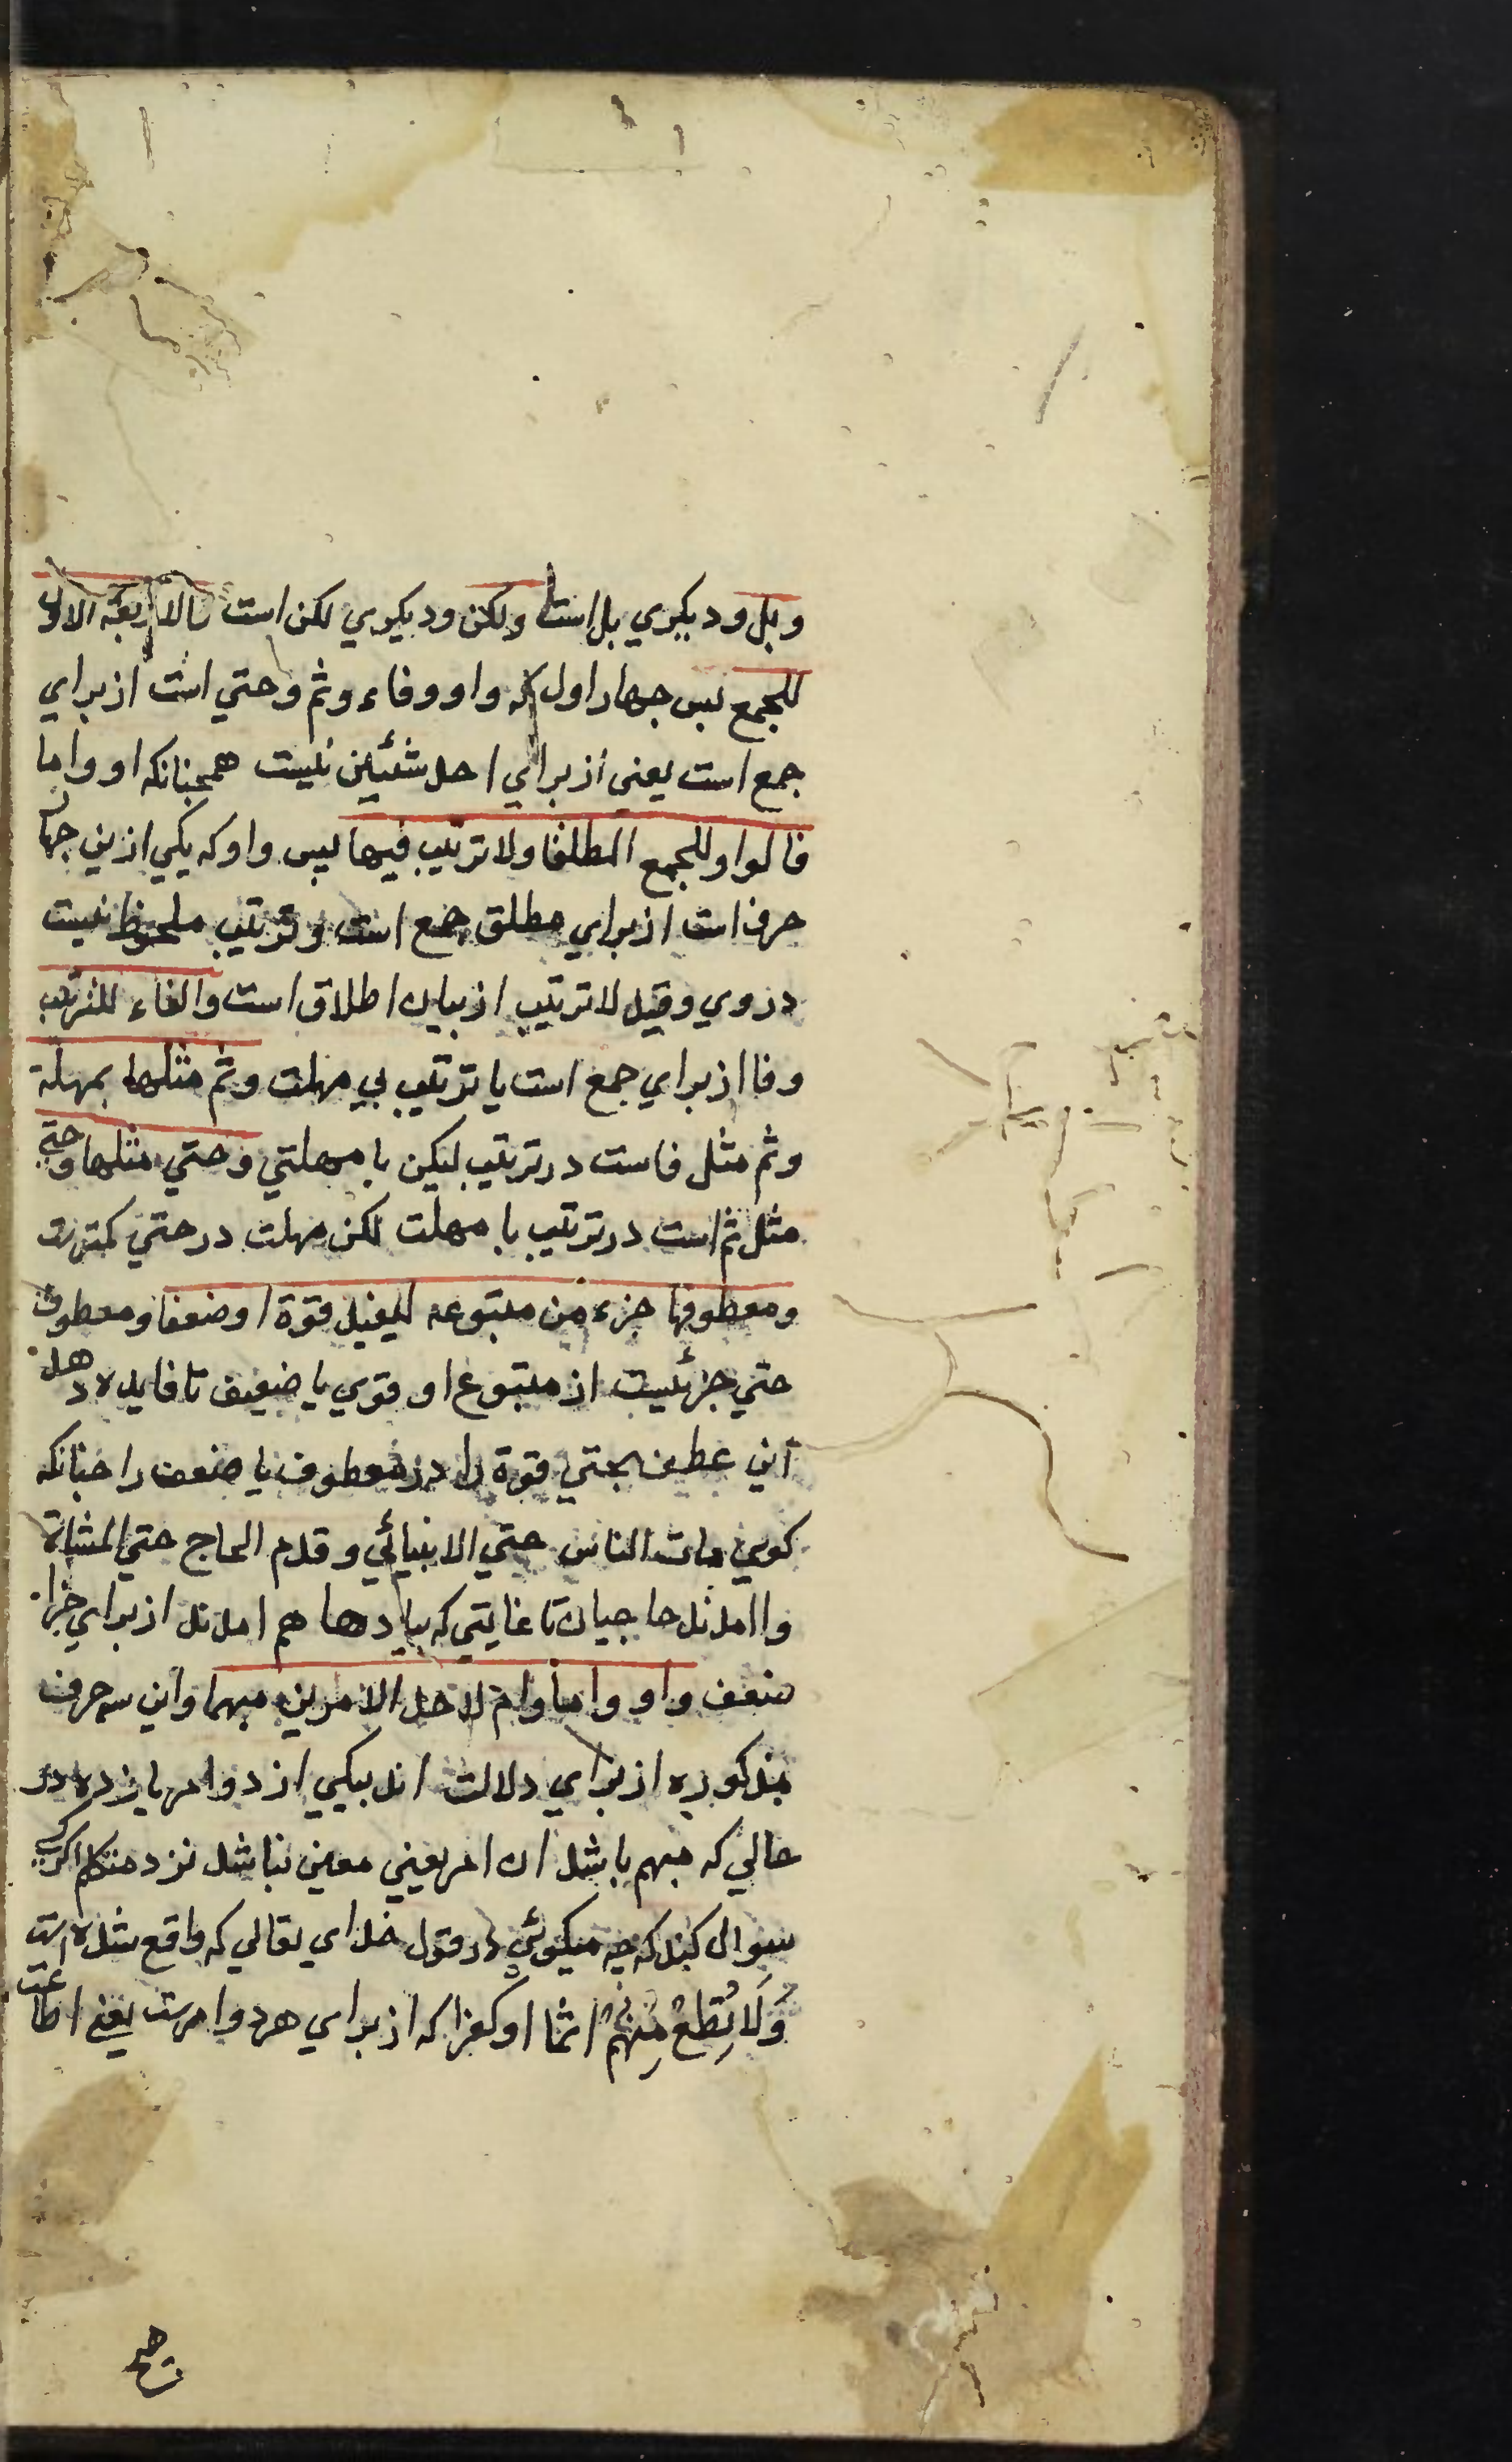 وبل ودیکري بل است ولکن ودیکري لکن است فالاربعة الاول
للجمع نبس جهار اول که واو وفاء وثم وحتي است از براي
جمع است یعنی از براي احد شئیین نیست همجنانکه او واما
فالواو للجمع المطلقا ولا ترتیب فیها لیس واو که یکي ازین جهار
حرف است از براي مطلق جمع است و ترتیب ملحوظ نیست
دروي وقید لا ترتیب از بیان اطلاق است والفاء للترتیب
وفا از براي جمع است با ترتیب بي مهلت وثم مثلها بمهلة
وثم مثل فاست در ترتیب لیکن با مهلتي وحتي مثلها وحتي
مثل ثم است در ترتیب با مهلت لکن مهلت در حتي کمترت
ومعطوفها جزء من متبوعه لیفید قوة او ضعفا ومعطوف
حتي جزئیست از متبوع او قوي یا ضعیف تا فایده دهد
این عطف بحتي قوة را در معطوف یا ضعف را جنانکه
کوي مات الناس حتي الانبیائي وقدم الحاج حتي المشاة
واامدند حاجیان تا غایتي که بیادها هم امدند از براي جزا
ضعف واو واما وام لاحد الامرین مبهما واین سه حرف
مذکوره از براي دلالت اند بیکي از دو امر یا زده در
حالي که مبهم باشد ان امر یعني معین نباشد نزد متکلم اکر کسي
سوال کند که جه میکوئي در قول خداي تعالي که واقع شده است
وَلَا تُطِعْ مِنْهُمْ اثما او کفرا که از براي هر دو امرست یعني اطاعت